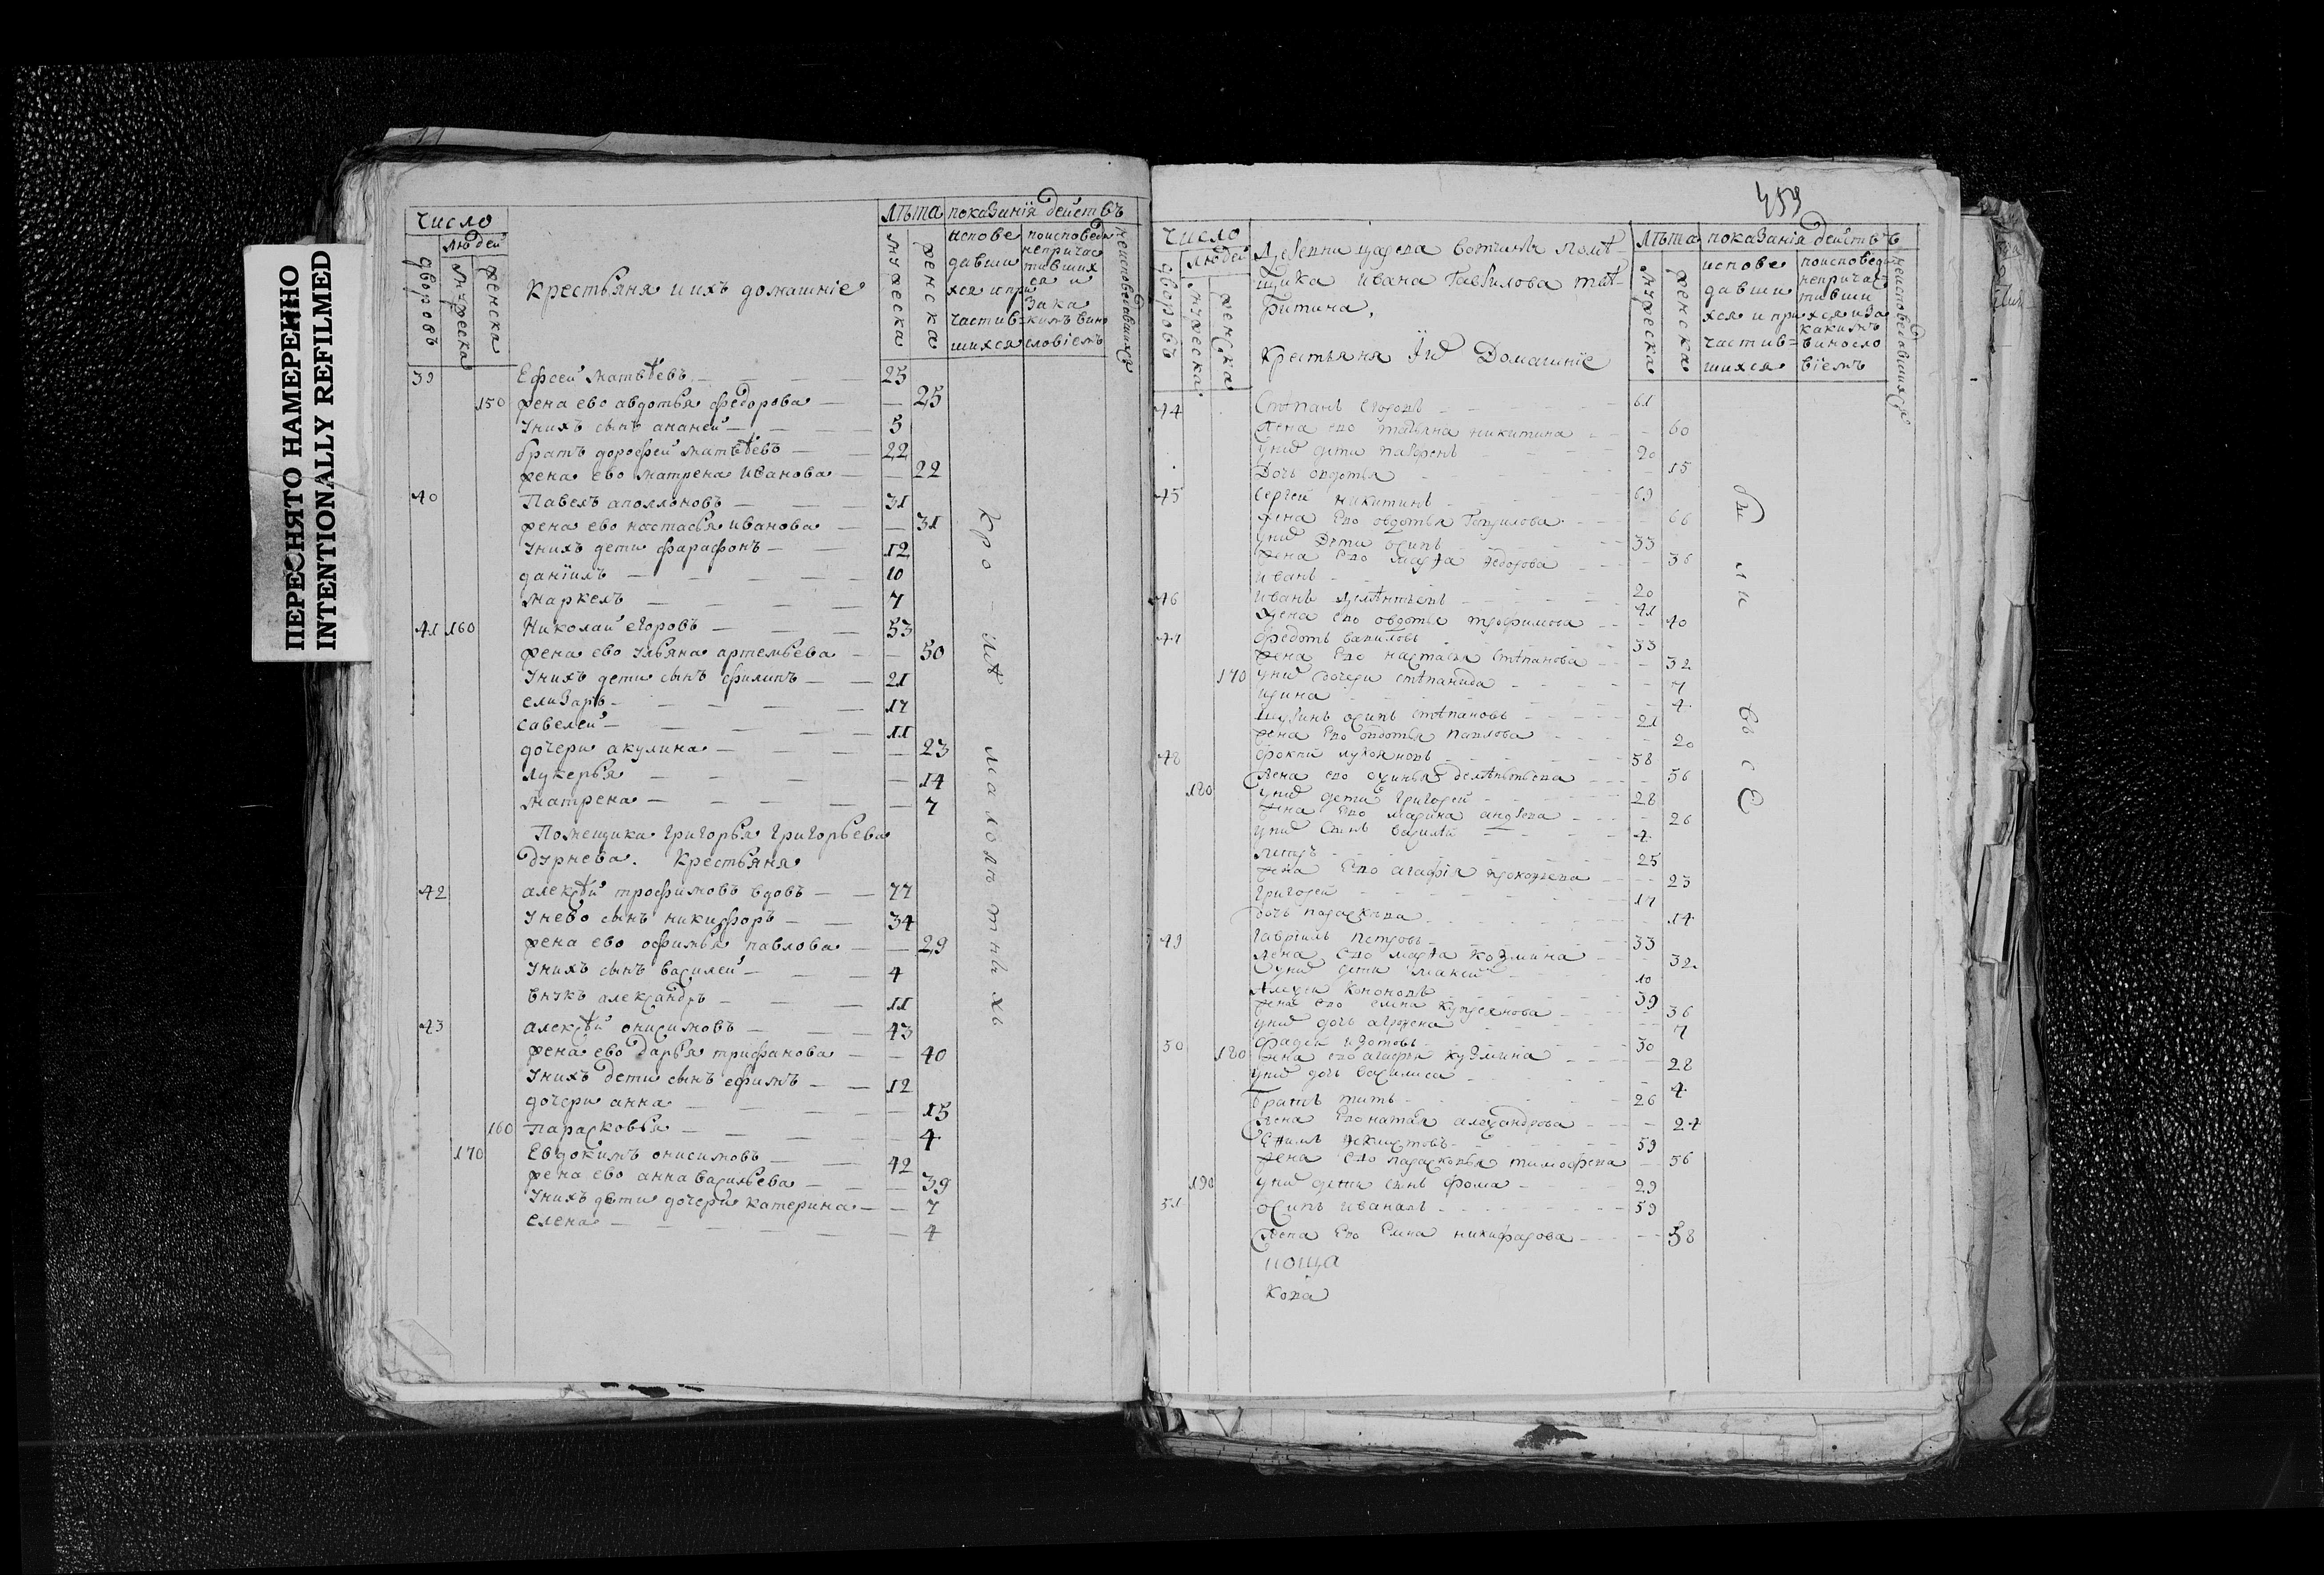 ПЕРЕСНЯТО НАМЕРЕННО
INTENTIONALLY REFILMED
число
людей
дворовъ
мужеска
женска
крестьяня и ихъ домашнїе
лѣта
мужеска
женска
показанїя действъ
испове
давши
хся и при
частив=
шихся
поисповеди
непричас
тивших
ся и
зака
кимъ вино
словїемъ
неисповедавшихся
39 Ефсей матвѣевъ 25
150 жена ево авдотья федорова 25
Унихъ сынъ ананей 5
братъ дорофей матвѣевъ 22
жена ево матрена иванова 22
40 Павелъ аполлоновъ 31
жена ево настасья иванова 31
Унихъ дети фарафонъ 12
данїилъ 10
маркелъ 7
41 160 Николай егоровъ 53
жена ево ульяна артемьева 50
Унихъ дети сынъ филипъ 21
елизаръ 17
савелей 11
дочери акулина 23
лукерья 14
матрена 7
Помещика григорья григорьева
дурнева. крестьяня
42 алексѣй трофимовъ вдовъ 77
Унево сынъ никифоръ 34
жена ево офимья павлова 29
Унихъ сынъ василей 4
внукъ александръ 11
43 алексѣй онисимовъ 43
жена ево дарья трифанова 40
Унихъ дети сынъ ефимъ 12
дочери анна 15
160 Парасковья 4
170 Евдокимъ онисимовъ 42
жена ево анна васильева 39
Унихъ дети дочери катерина 7
елена 4
кро-мѣ малолѣтныхъ
459
число
людей
дворовъ
мужеска
женска
Деревни вотчины помѣ-
щика ивана гаврилова
крестьяня Их Домашнїе
лѣта
мужеска
женска
показанїя действъ
испове
давши
хся и при
частив=
шихся
поисповеди
непричас
тивши
хся иза
какимъ
виносло
вїемъ
неисповедавшихся
44 Стѣпанъ егоровъ 61
жена ево татьяна никитина 60
уних дети лаврень 20
Дочь овдотья 15
45 Сергей никитинъ 69
жена Ево овдотья гаврилова 66
уних Дети осипъ 33
жена Ево марfа федорова 36
иванъ 20
46 иванъ 41
жена ево овдотья трофимова 40
47 федотъ вавиловъ 33
жена Ево настасья стѣпанова 32
170 уних дочери стѣпанида 7
ирина 4
шуринъ осипъ стѣпановъ 21
жена Ево овдотья павлова 20
48 фокти лукояновъ 58
жена ево 56
180 уних дети григорей 28
жена Ево марина андрева 26
уних Сынъ василѣй 4
петръ 25
жена Ево агафїя прокофьева 23
григорей 17
дочь парасковья 14
49 гаврїилъ петровъ 33
жена Ево марfа козмина 32
уних дети макей 10
Алексей кононовъ 39
жена ево елена куприянова 36
уних дочь агрофена 7
50 фадей изотовъ 30
180 жена ево агафья кузмина 28
уних дочь василиса 4
братъ титъ 26
жена Ево наталья александрова 24
59
жена Ево парасковья тимофеева 56
190 уних дети сынъ фома 29
51 осипъ ивановъ 59
жена Ево Елена никифорова 58
были все